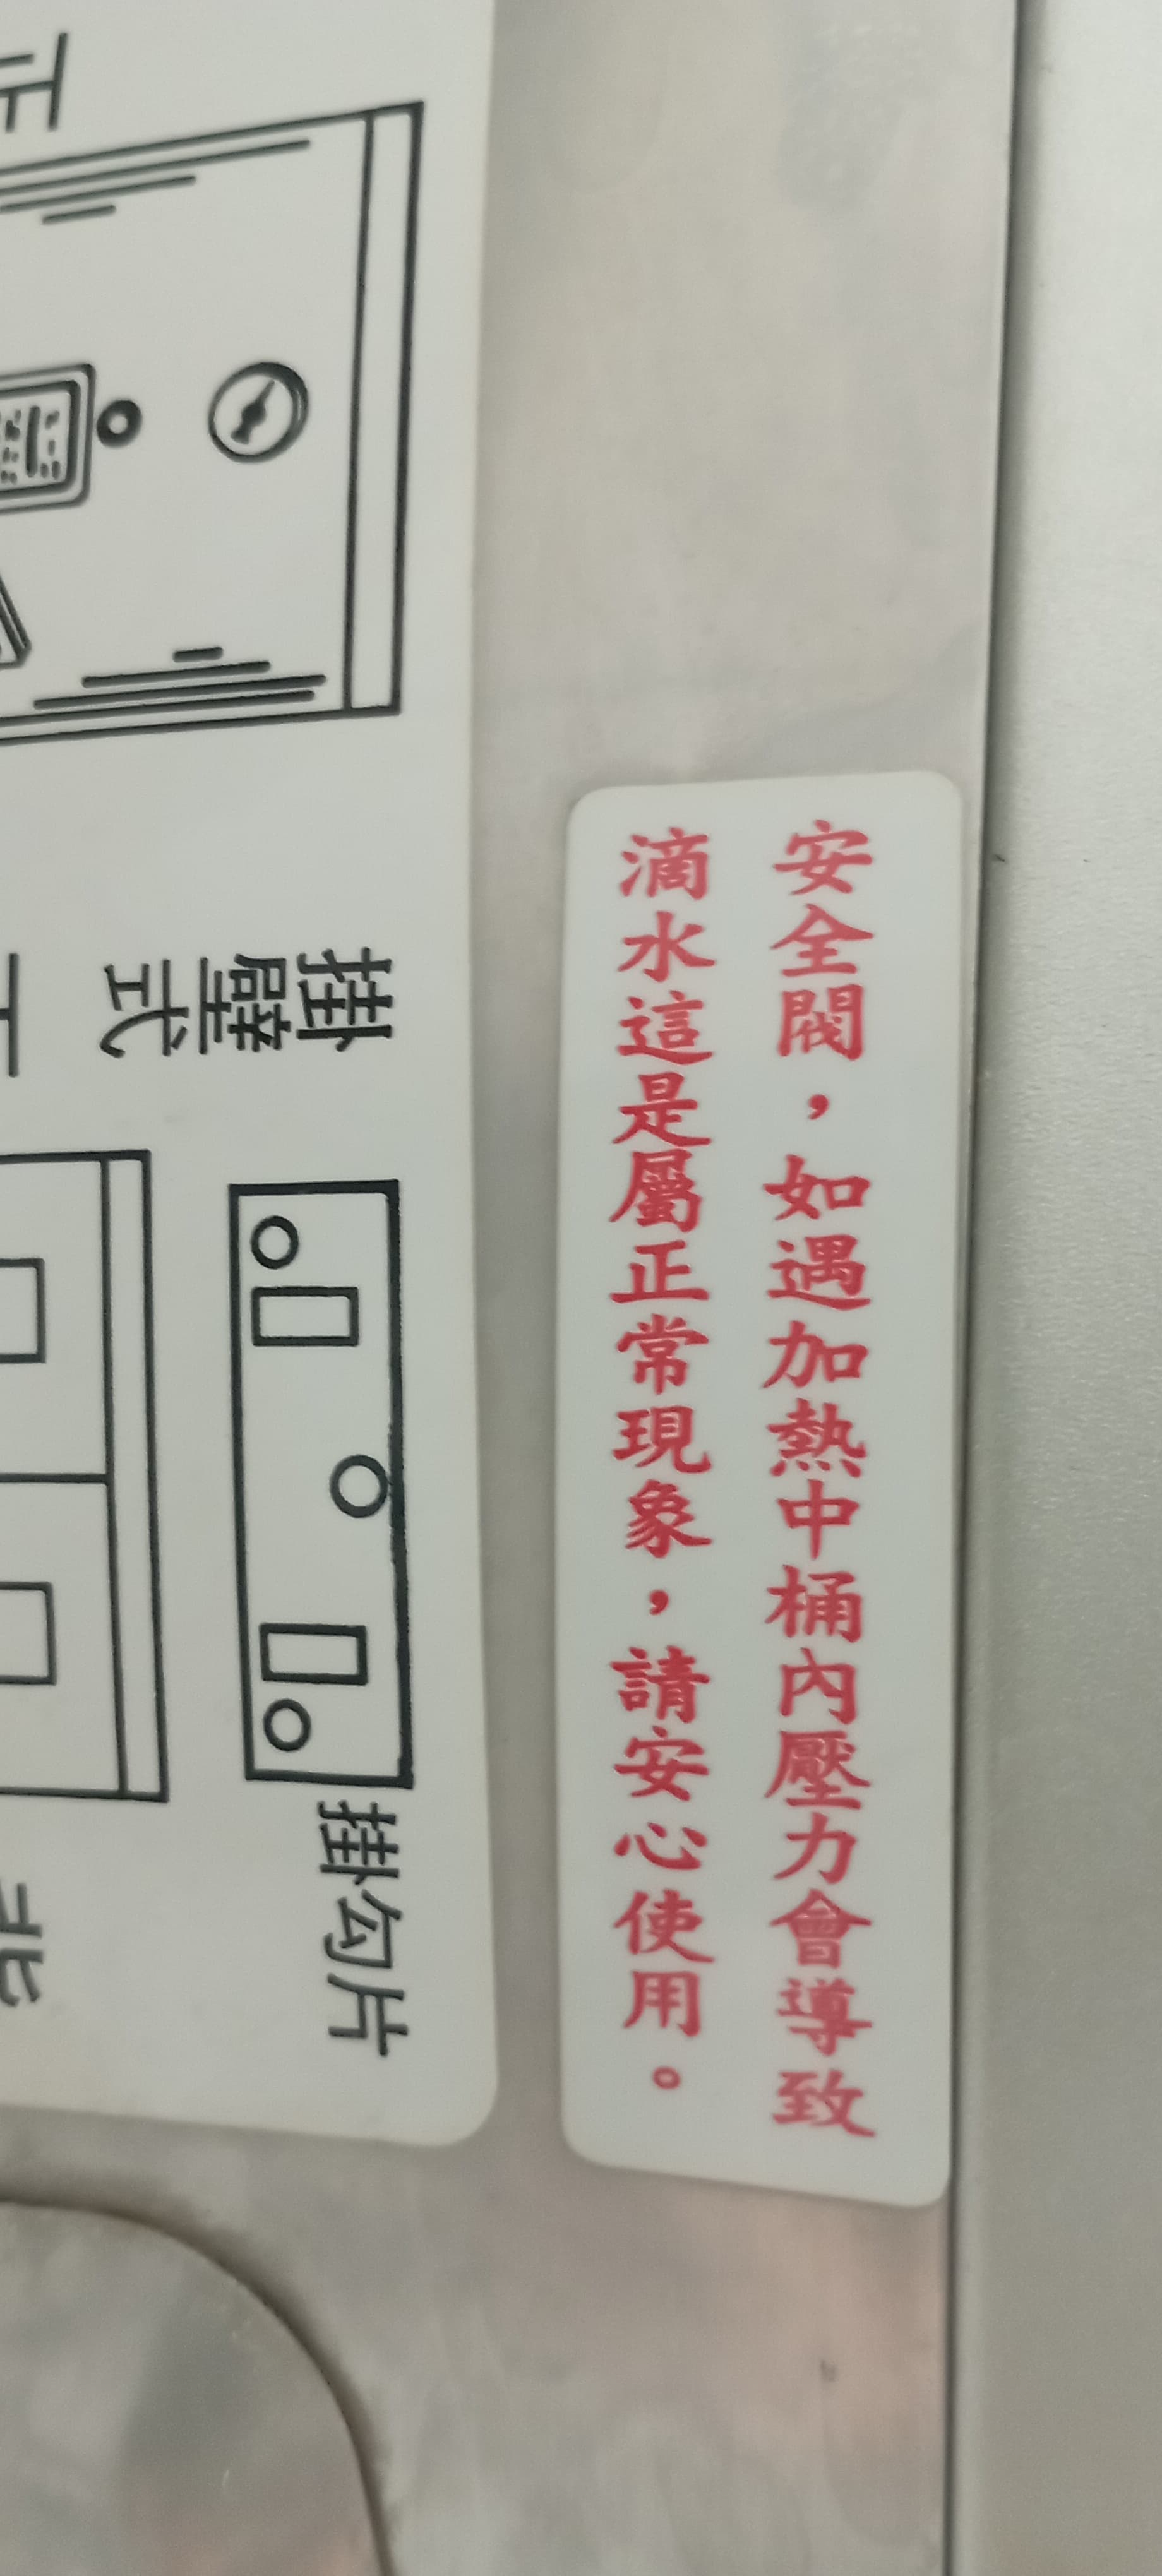 安全閥，如遇加熱中桶內壓力會導致
滴水這是屬正常現象，請安心使用。
掛壁式
掛勾片
正